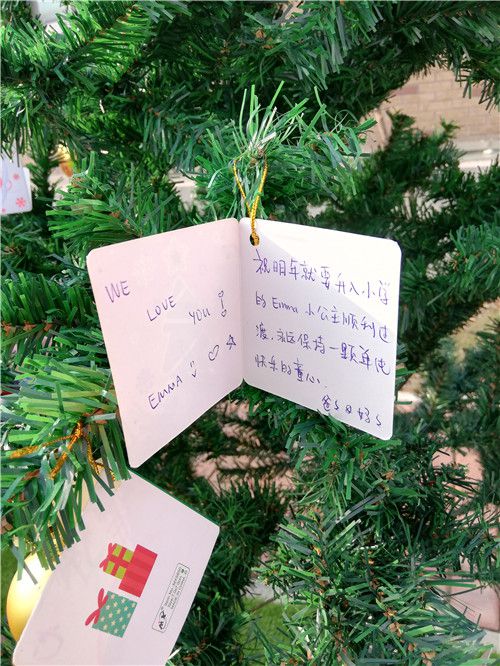 WE
LOVE
YOU!
EMMA
祝明年就要升入小学
的Emma小公主顺利过
渡,永远保持一颗
快乐的童心.